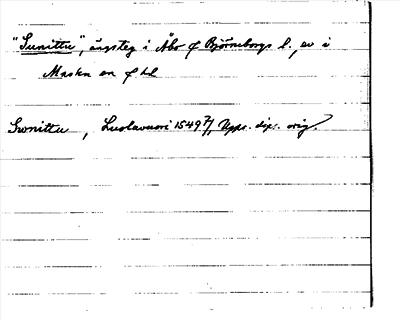 "Sunittu", ängsteg i Åbo o Björneborgs l., ev i
Masku sn o hd
Swnittu, Luolavuori 1549 7/, Uppr. dipl. orig.